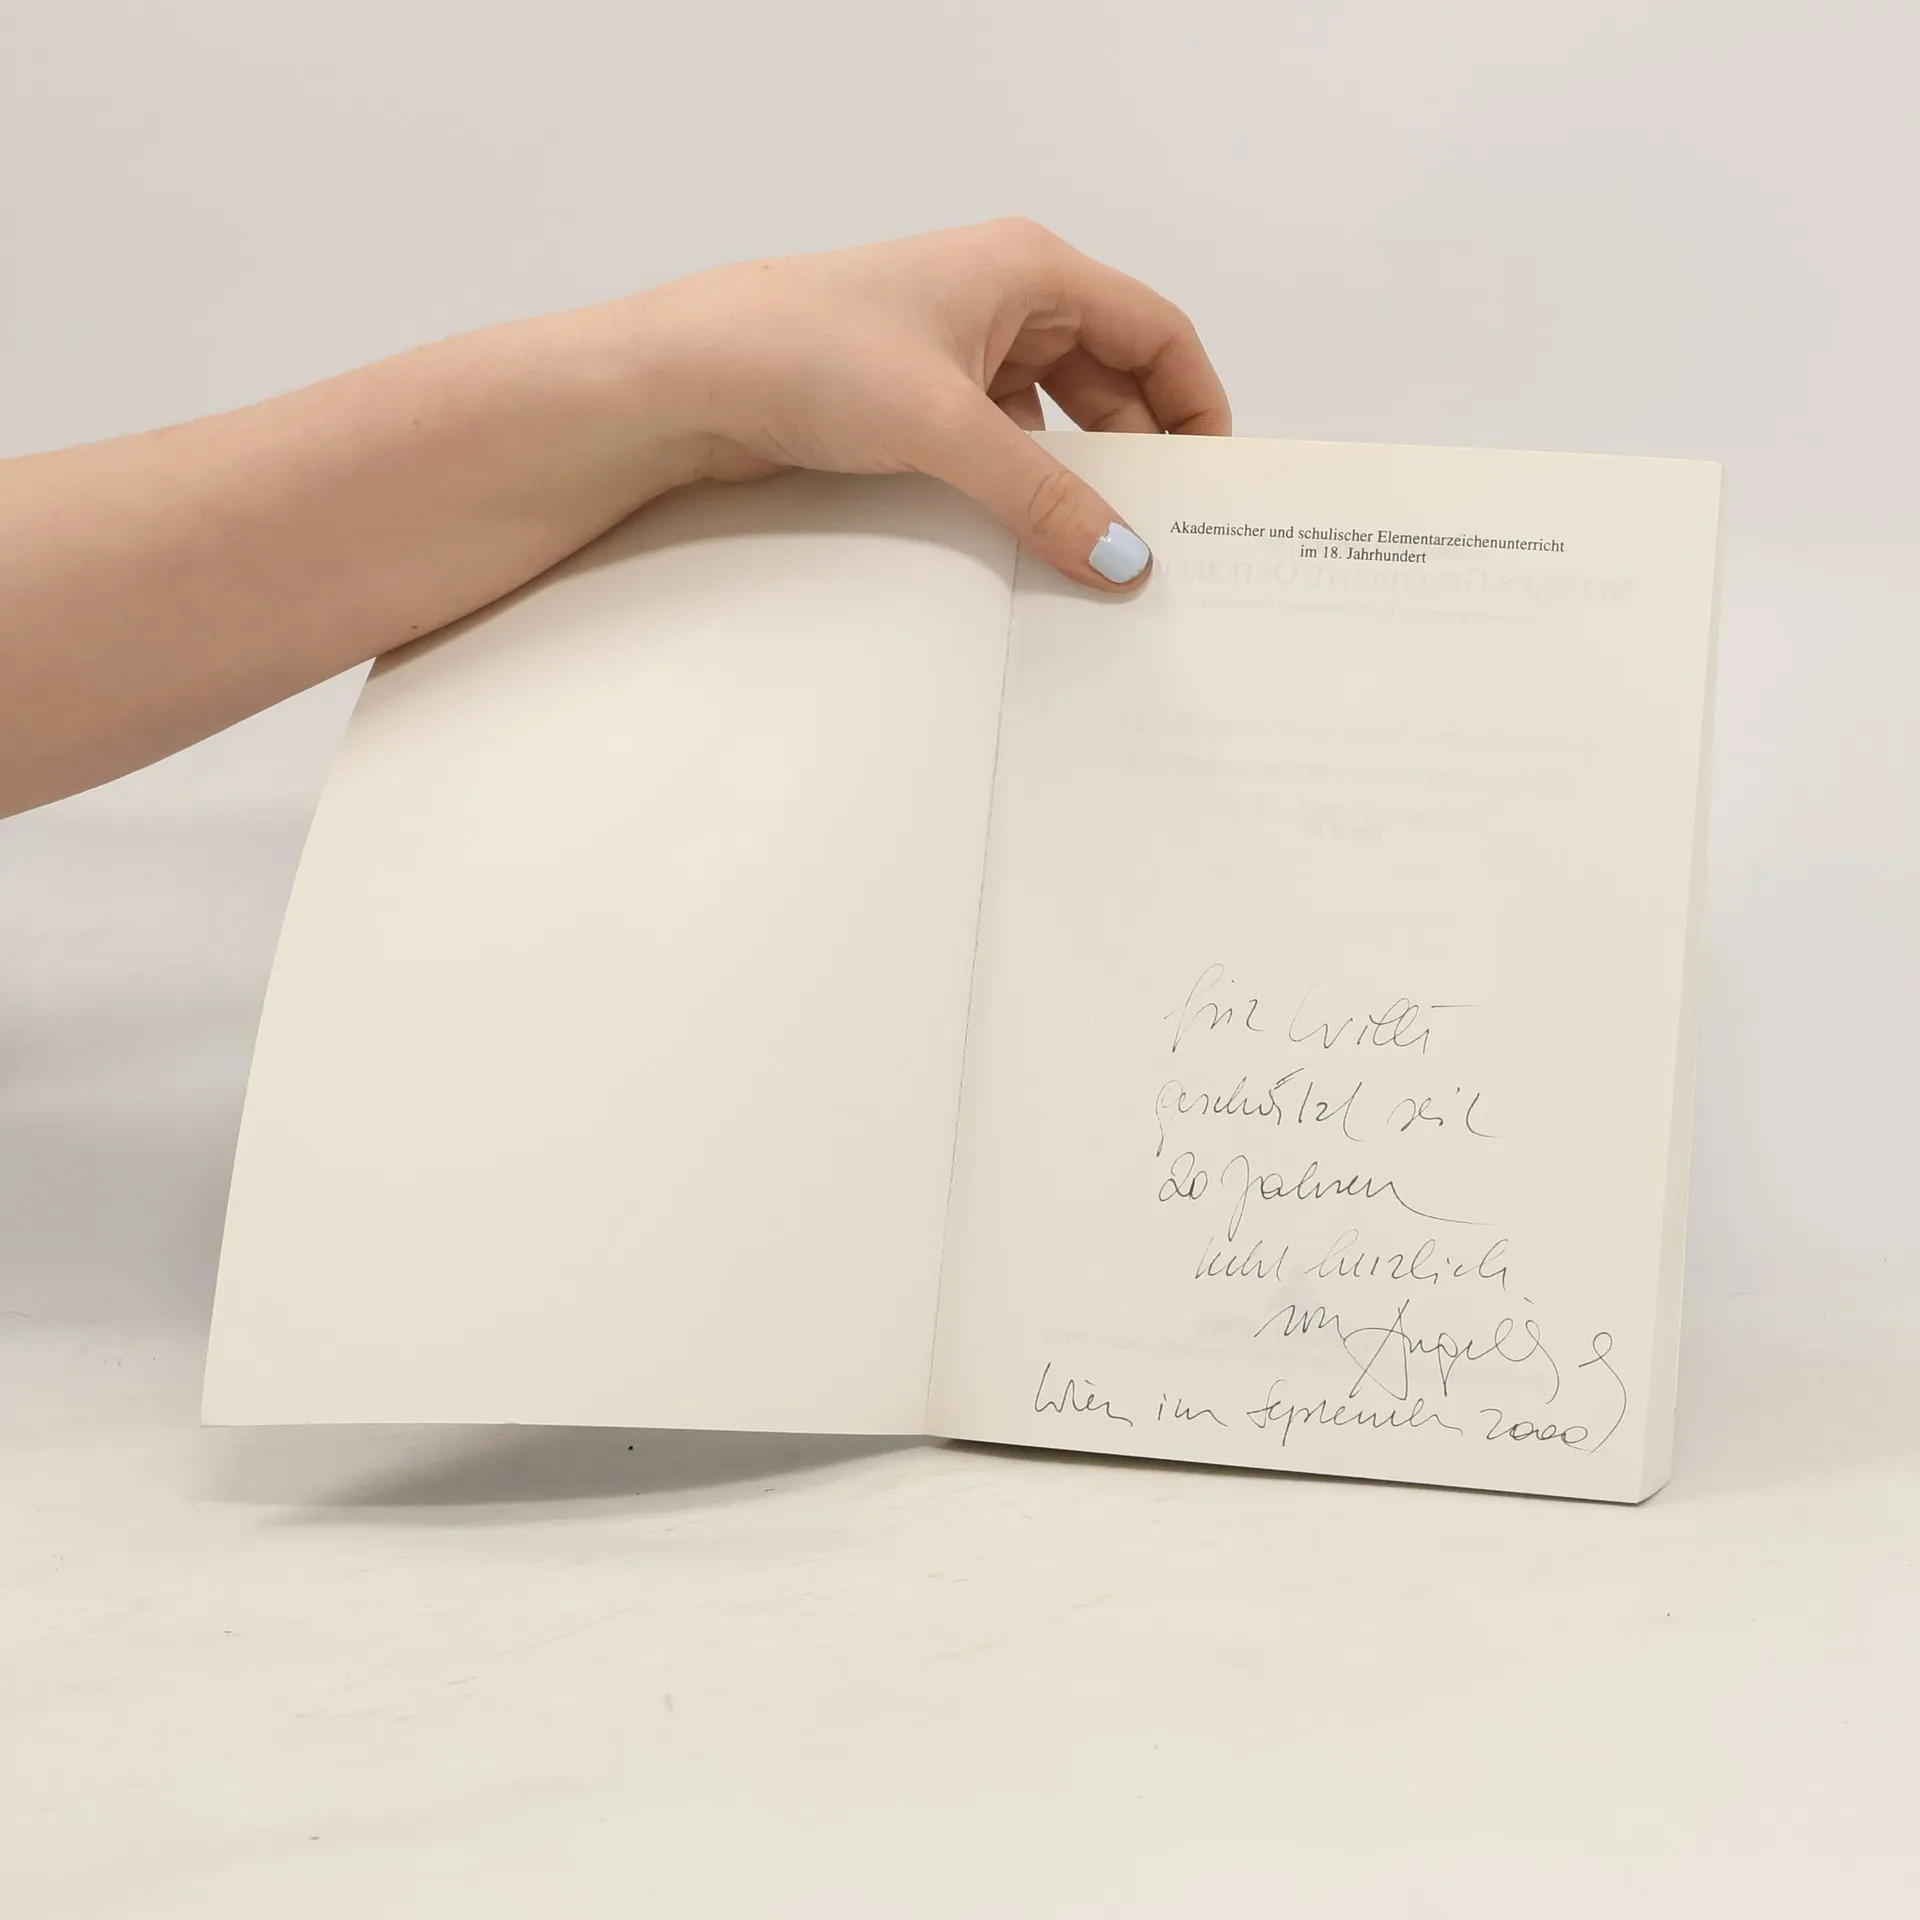 Akademischer und schulischer Elementarzeichenunterricht
im 18. Jahrhundert
für Willi
geschätzt seit
20 Jahren
sehr herzlich
von
Wien im September 2000